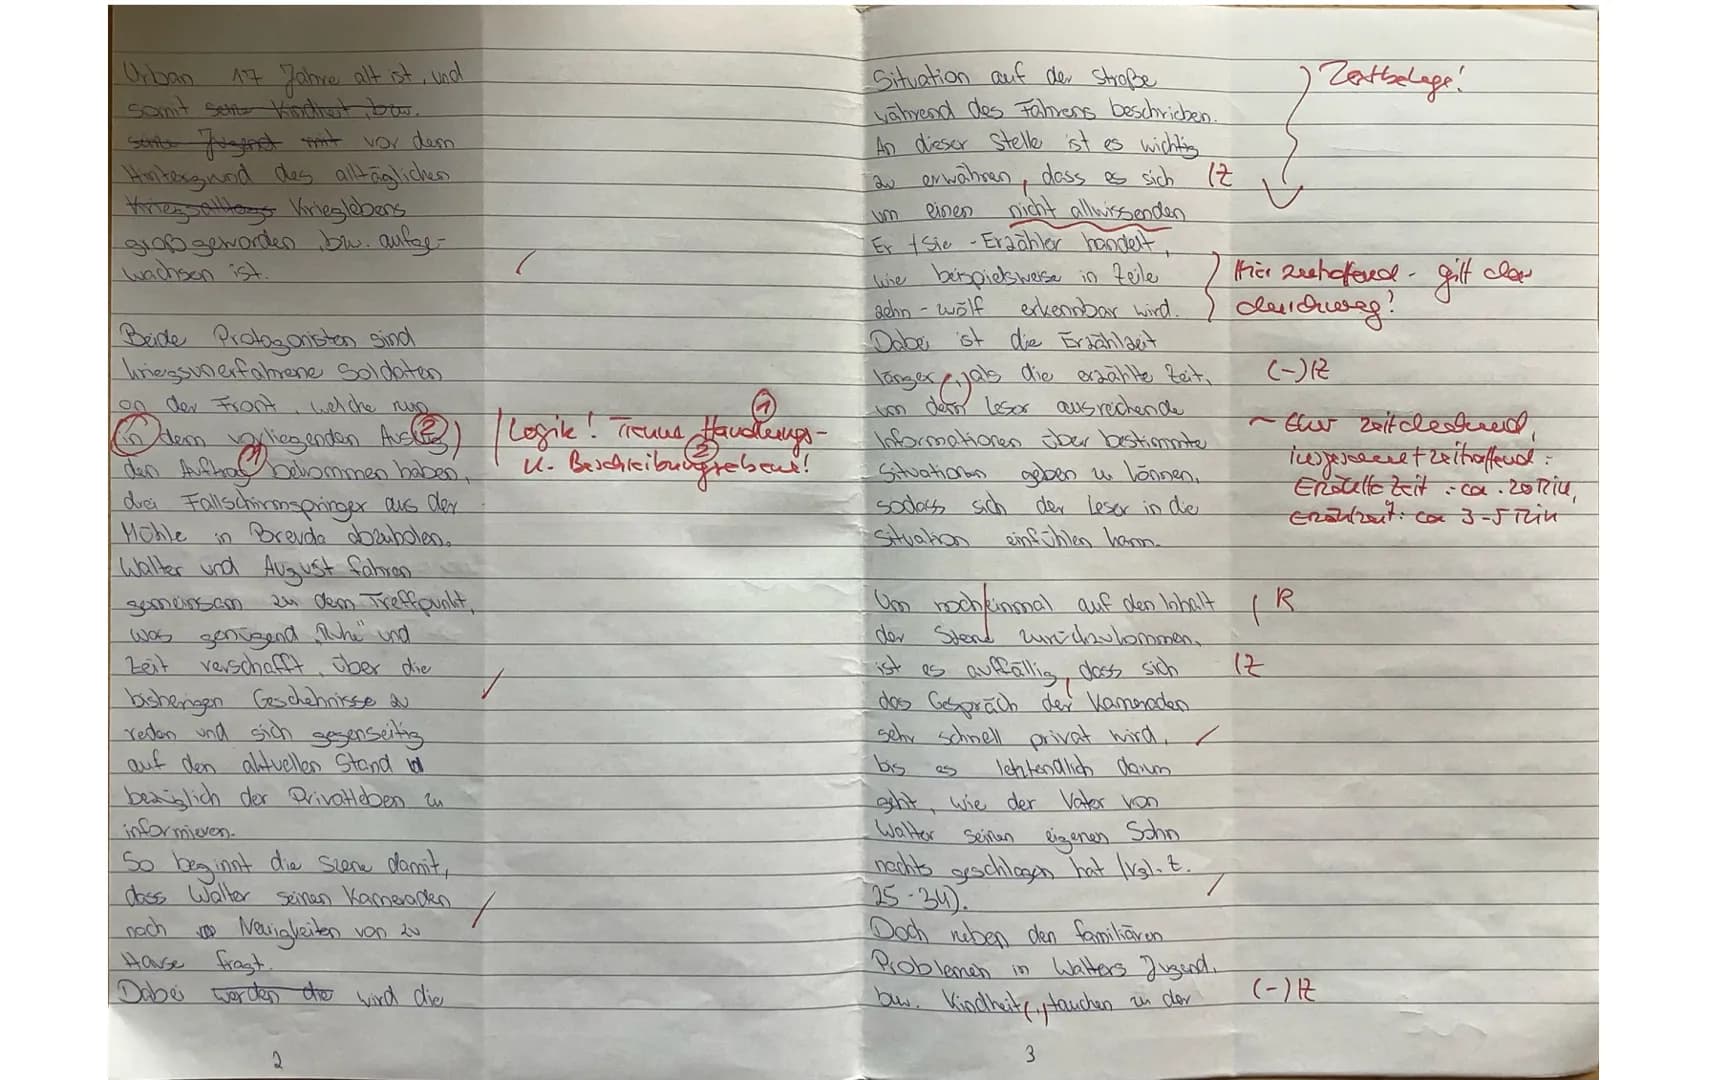 Urban 17 Jahre alt ist, und
somit seine Kindheit, bzw.
seine Jugend mit vor dem
Hintergrund des alltäglichen
Kriegsalltags Krieglebens
großgeworden, bzw. aufge-
wachsen ist.
Beide Protagonisten sind
kriegsunerfahrene Soldaten
an der Front, welche nun
in dem vorliegenden Auszug
den Auftrag bekommen haben,
drei Fallschirmspringer aus der
Mühle in Brevda abzuholen.
Walter und August fahren
gemeinsam zu dem Treffpunkt,
was genügend "Ruhe" und
Zeit verschafft, über die
bisherigen Geschehnisse zu
reden und sich gegenseitig
auf den aktuellen Stand
bezüglich der Privatleben zu
informieren.
So beginnt die Szene damit,
dass Walter seinen Kameraden
nach Neuigkeiten von zu
Hause fragt.
Dabei werden die wird die
2
Logik! Trenne Handlungs-
u. Beschreibungsebene!
1
2
2
1
Situation auf der Straße
während des Fahrens beschrieben.
An dieser Stelle ist es wichtig
zu erwähnen, dass es sich
um einen nicht allwissenden
Er / Sie - Erzähler handelt,
wie beispielsweise in Zeile
zehn - wölf erkennbar wird.
Dabei ist die Erzählzeit
länger (,) als die erzählte Zeit,
um dem Leser ausreichende
Informationen über bestimmte
Situationen geben zu können,
sodass sich der Leser in die
Situation einfühlen kann.
Um noch einmal auf den Inhalt
der Szene zurückzukommen,
ist es auffällig, dass sich
das Gespräch der Kameraden
sehr schnell privat wird,
bis es letztendlich darum
geht, wie der Vater von
Walter seinen eigenen Sohn
nachts geschlagen hat (vgl. Z.
25-34).
Doch neben den familiären
Problemen in Walters Jugend,
bzw. Kindheit (,) tauchen in der
3
Textbelege!
|Z
Hier zeitraffend - gilt das
durchweg?
(-) |Z
~ Eher zeitdeckend,
insgesamt zeitraffend:
Erzählte Zeit: ca. 20 Min,
Erzählzeit: ca 3-5 Min
| R
|Z
(-) |Z